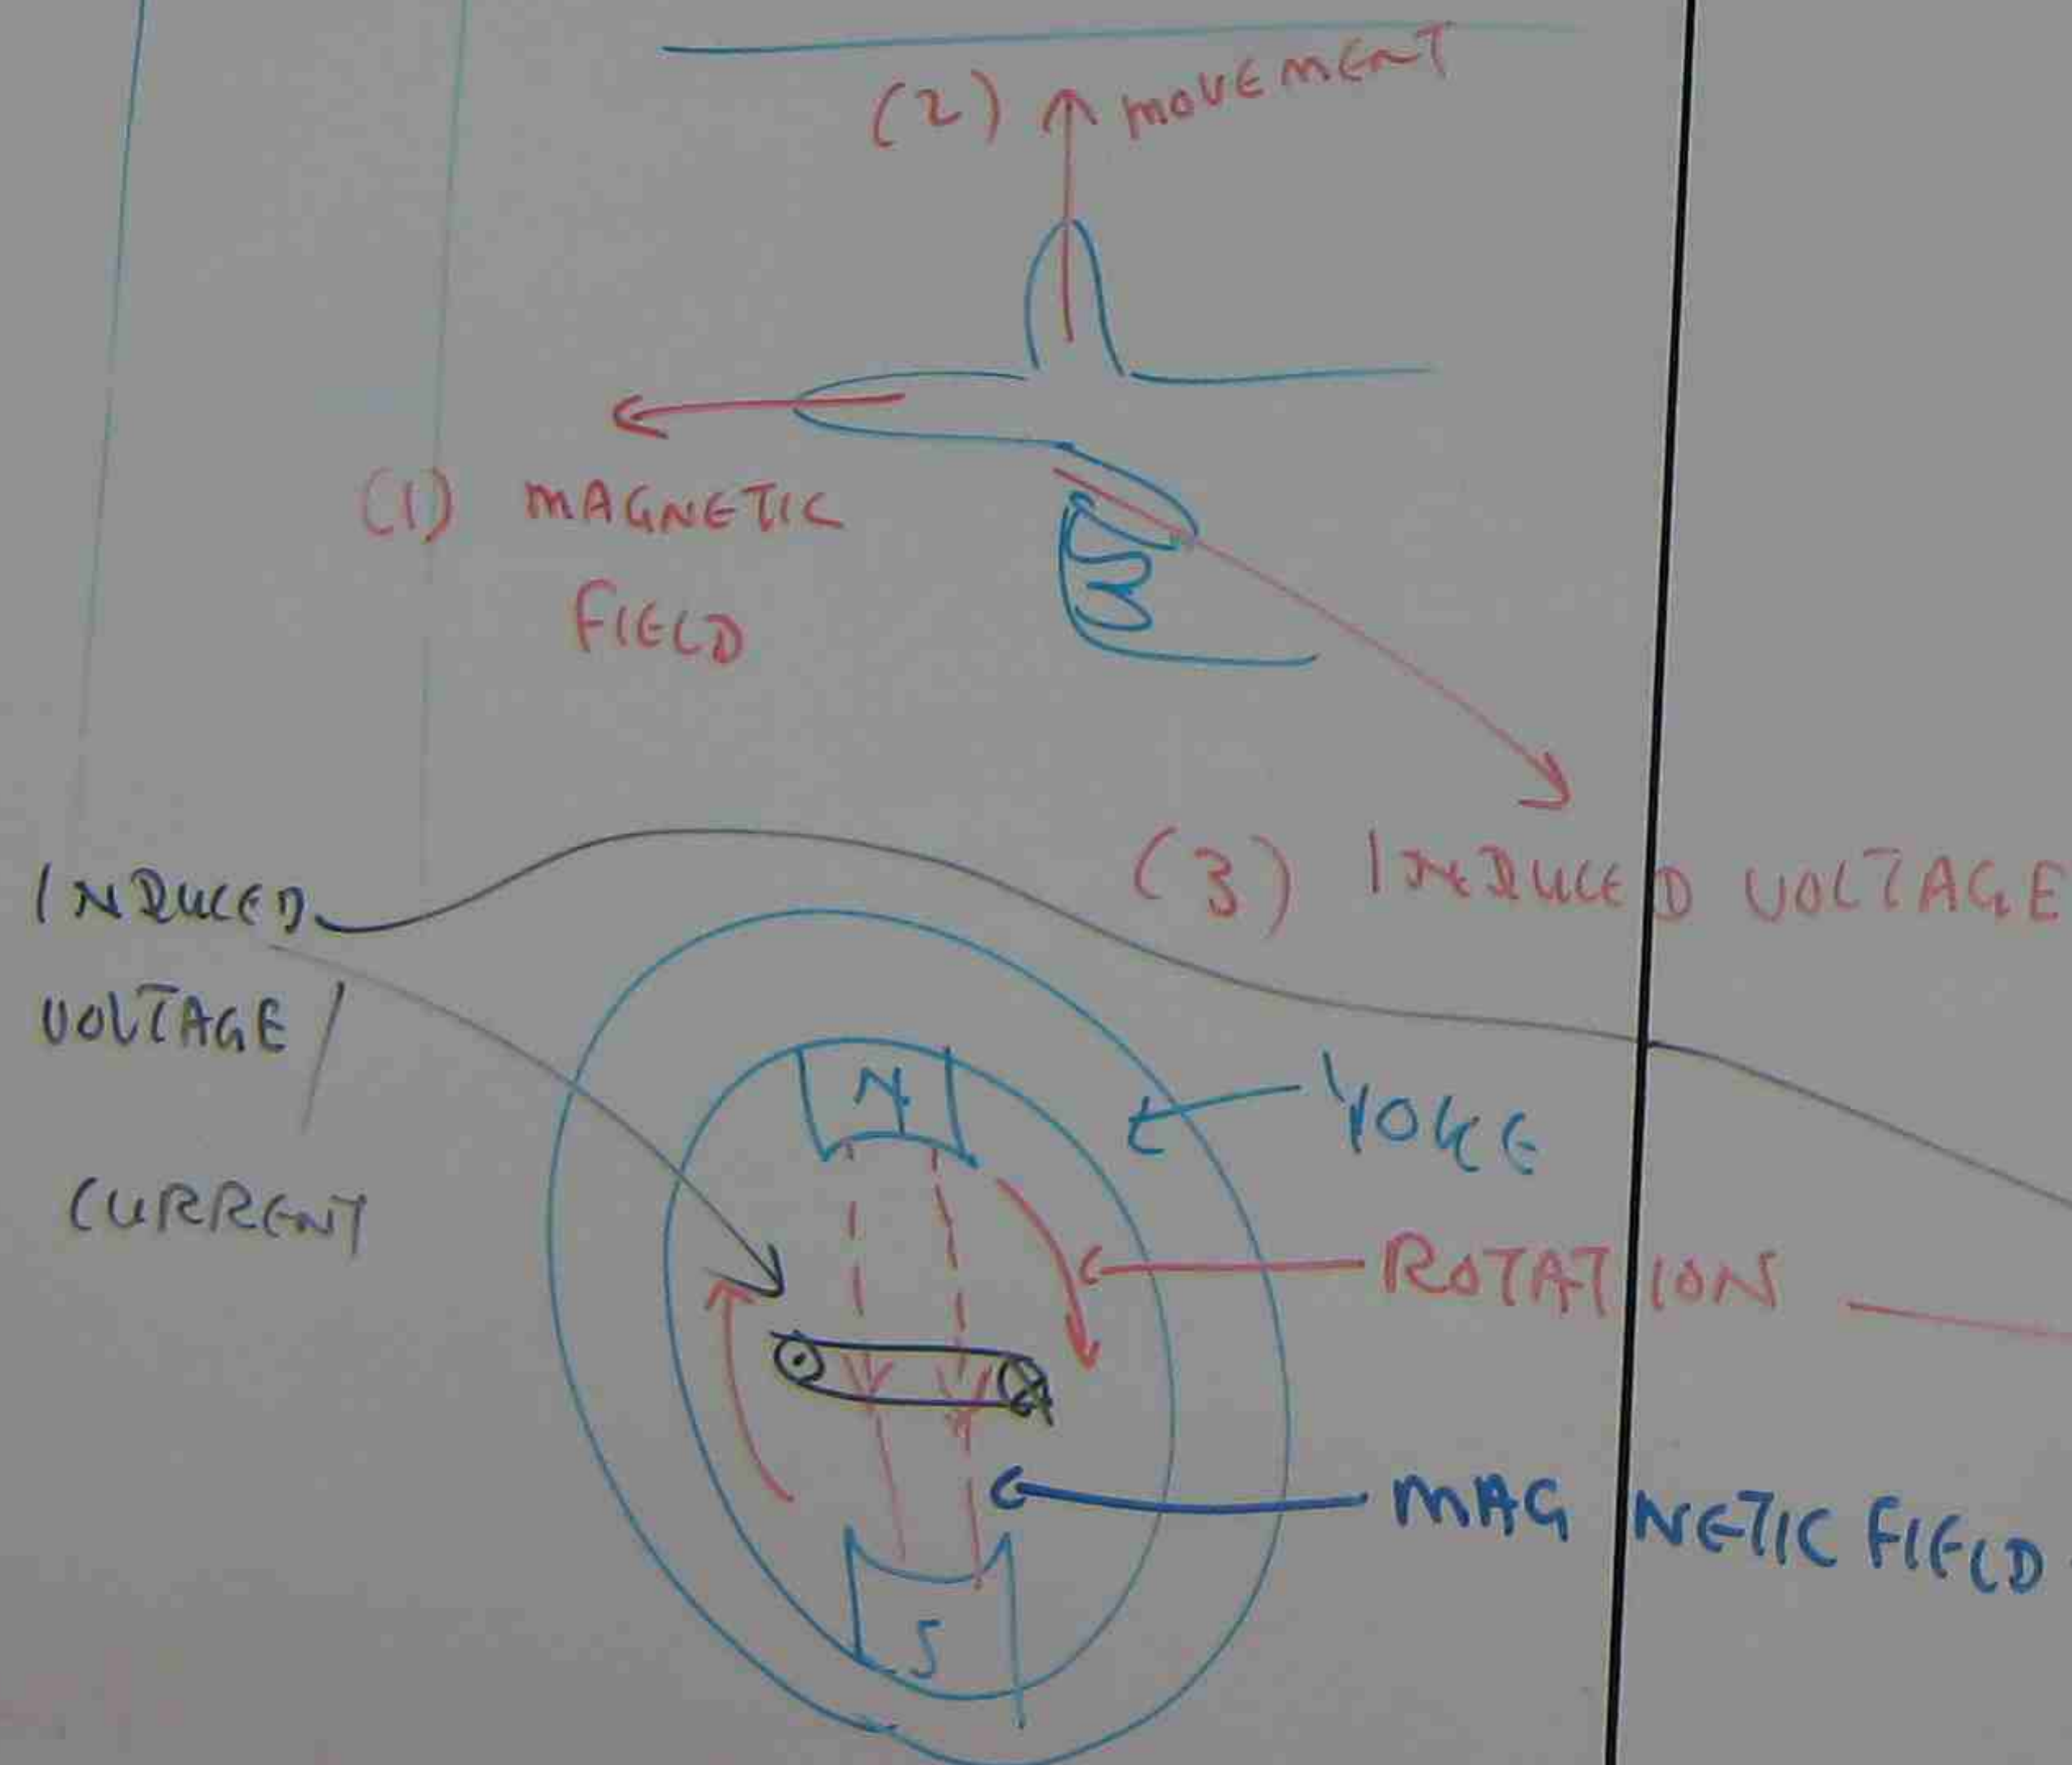 (2) MOVEMENT
(1) MAGNETIC
FIELD
(3) INDUCED VOLTAGE
INDUCED
VOLTAGE /
CURRENT
N
YOKE
ROTATION
MAGNETIC FIELD
S